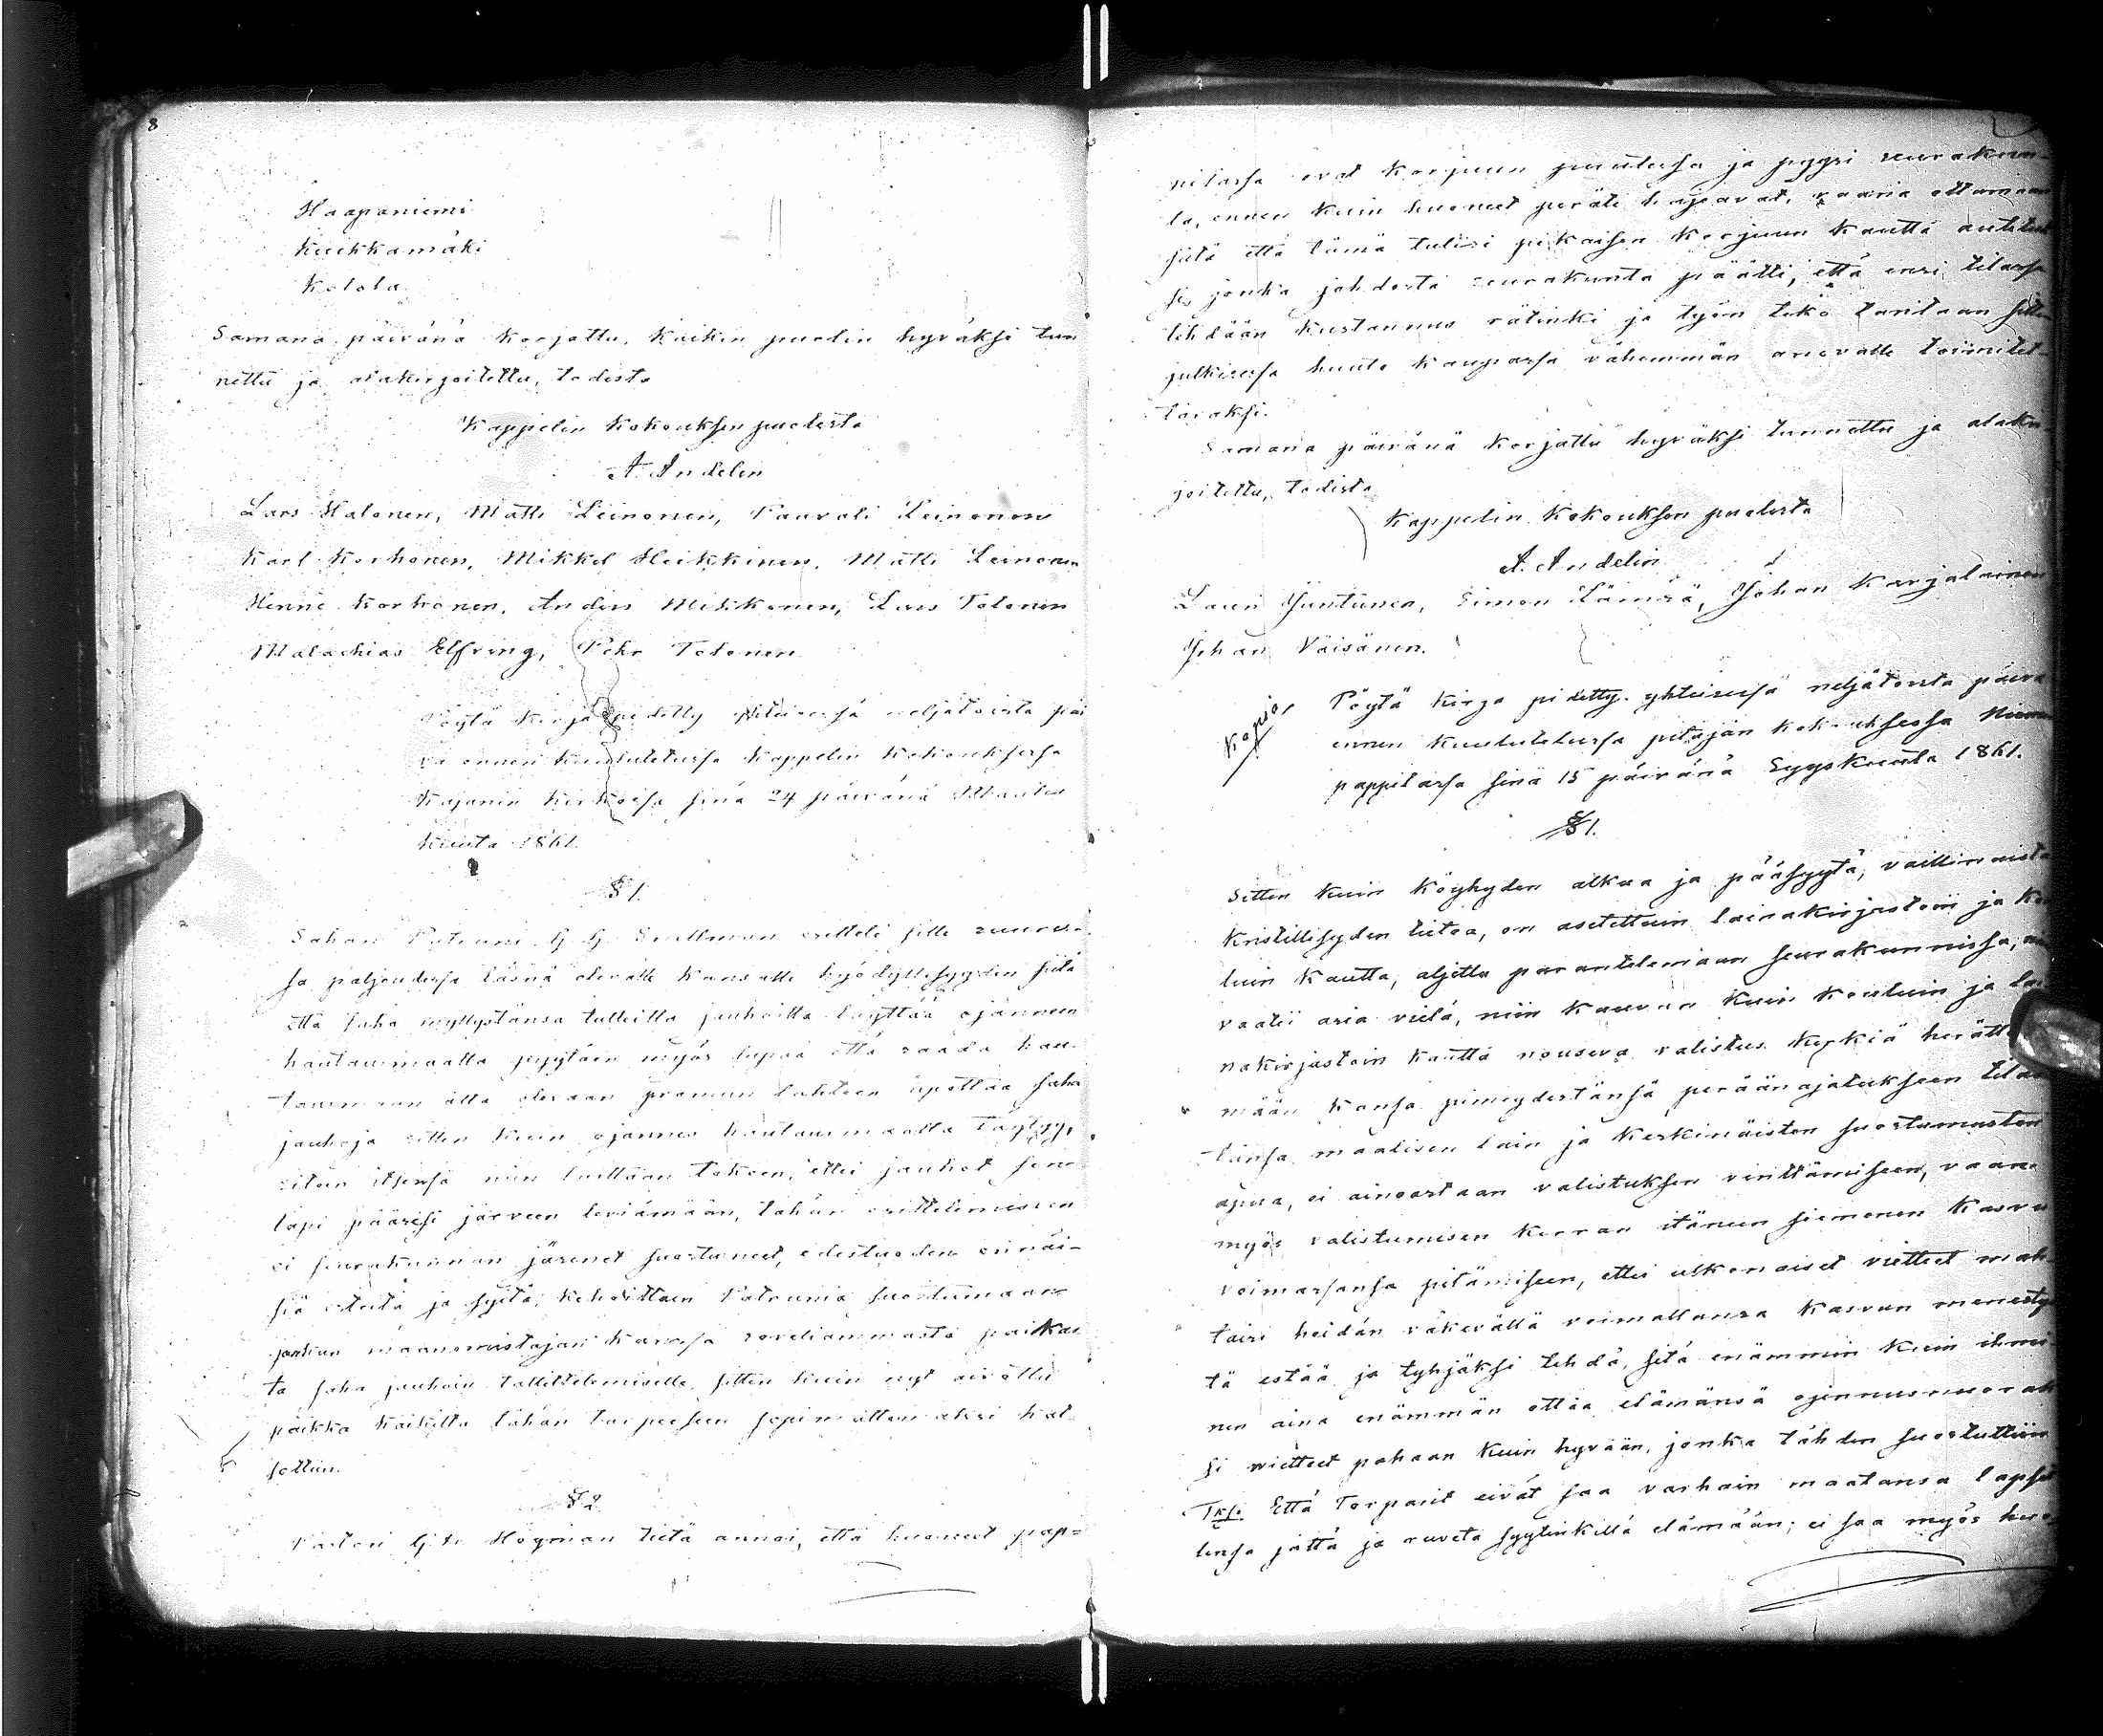 8
Haapaniemi
Kuikkamäki
Kolola
Samana päivänä korjattu, kaikin puolin hyväksi tun
nettu ja alakirjoitettu, todista
Kappelin Kokouksen puolesta
A. Andelin
Lars Halonen, Matti Leinonen, Paavali Leinonen
Karl Korhonen, Mikkel Heikkinen, Matti Leinonen
Henric Korhonen, Anders Mikkonen, Lars Tolonen
Malachias Elfving, Pehr Tolonen
Pöytä kirja pidetty yhteisessä neljätoista päi
vä ennen kuulutetussa Kappelin Kokouksessa
Kajanin kirkossa sinä 24 päivänä Maalis
kuuta 1861.
§ 1.
Sahan Patruuni G. G. Snellman esitteli sille suures-
sa paljoudessa läsnä olevalle kansalle hyödyllisyyden siitä
että saha myllystänsä tulleilla jauhoilla täyttää ojänneen
hautausmaalla pyytäen myös lupaa että saada hau-
tausmaan alla olevaan pramun lahteen upottaa saha
jauhoja sitten kuin ojannes hautausmaalla täytyy,
sitoen itsensä niin luittaan tekoon, ettei jauhot sen
läpi pääsisi järveen leviämään, tähän esittelemiseen
ei seurakunnan jäsenet suostuneet, edestuoden erinäi-
siä esteitä ja syitä, kehoittaen Patrunia suostumaan
jonkun maanomistajan kanssa soveliammasta paikas
ta saha jauhoin tallittelemiselle, sitten kuin nyt aivottu
paikka kaikilta tähän tarpeeseen sopimattomaksi kat-
sottiin.
§ 2.
Pastori G. Fr. Högman tietä annoi, että huoneet pap=
pilassa ovat korjuun puutessa ja pyysi seurakun-
ta, ennen kuin huoneet peräti hajoavat, vaaria ottamaan
siitä että tämä tulisi pikaisen korjuun kautta autetuk
si, jonka johdosta seurakunta päätti, että ensi tilassa
tehdään kustannus rätinki ja työn teko tantaan sitte
julkisessa huuto kaupassa vähemmän anovalle toimitet-
tavaksi.
Samana päivänä korjattu hyväksi tunnettu ja alakir-
joitettu, todista
Kappelin Kokouksen puolesta
A. Andelin
Lauri Juntunen, Simon Lämsä, Johan Karjalainen
Johan Väisänen.
Kopio,
Pöytä kirja pidetty yhteisessä neljätoista päivä
ennen kuulutetussa pitäjän kokouksessa
pappilassa sinä 15 päivänä Syyskuuta 1861.
§ 1.
Sitten kuin köyhyden alkua ja pääsyytä, vaillinaista
kristillisyden tietoa, on asetettuin lainakirjastoin ja kou
luin kautta, aljettu parantelemaan seurakunnissa,
vaatii asia vielä, niin kauvan kuin kouluin ja lai
nakirjastoin kautta nouseva valistus kerkiä herättä
mään kansa pimeydestänsä perään ajatukseen tilas
tansa maalisen lain ja keskinäisten suostumusten
apua, ei ainoastaan valistuksen virittämiseen, vaan
myös valistumisen kerran itäneen siemenen kasvu
voimassansa pitämiseen, ettei ulkonaiset vietteet mah
taisi heidän väkevällä voimallansa kasvun menesty
tä estää ja tyhjäksi tehdä, sitä enämmin kuin ihmi
nen aina enämmän ottaa elämänsä ojennusnuorak
si vietteet pahaan kuin hyvään, jonka tähden suostuttiin
1ksi. Että Torparit eivät saa varhain maatansa lapsil
lensa jättä ja ruveta syytinkillä elämään; ei saa myös huo